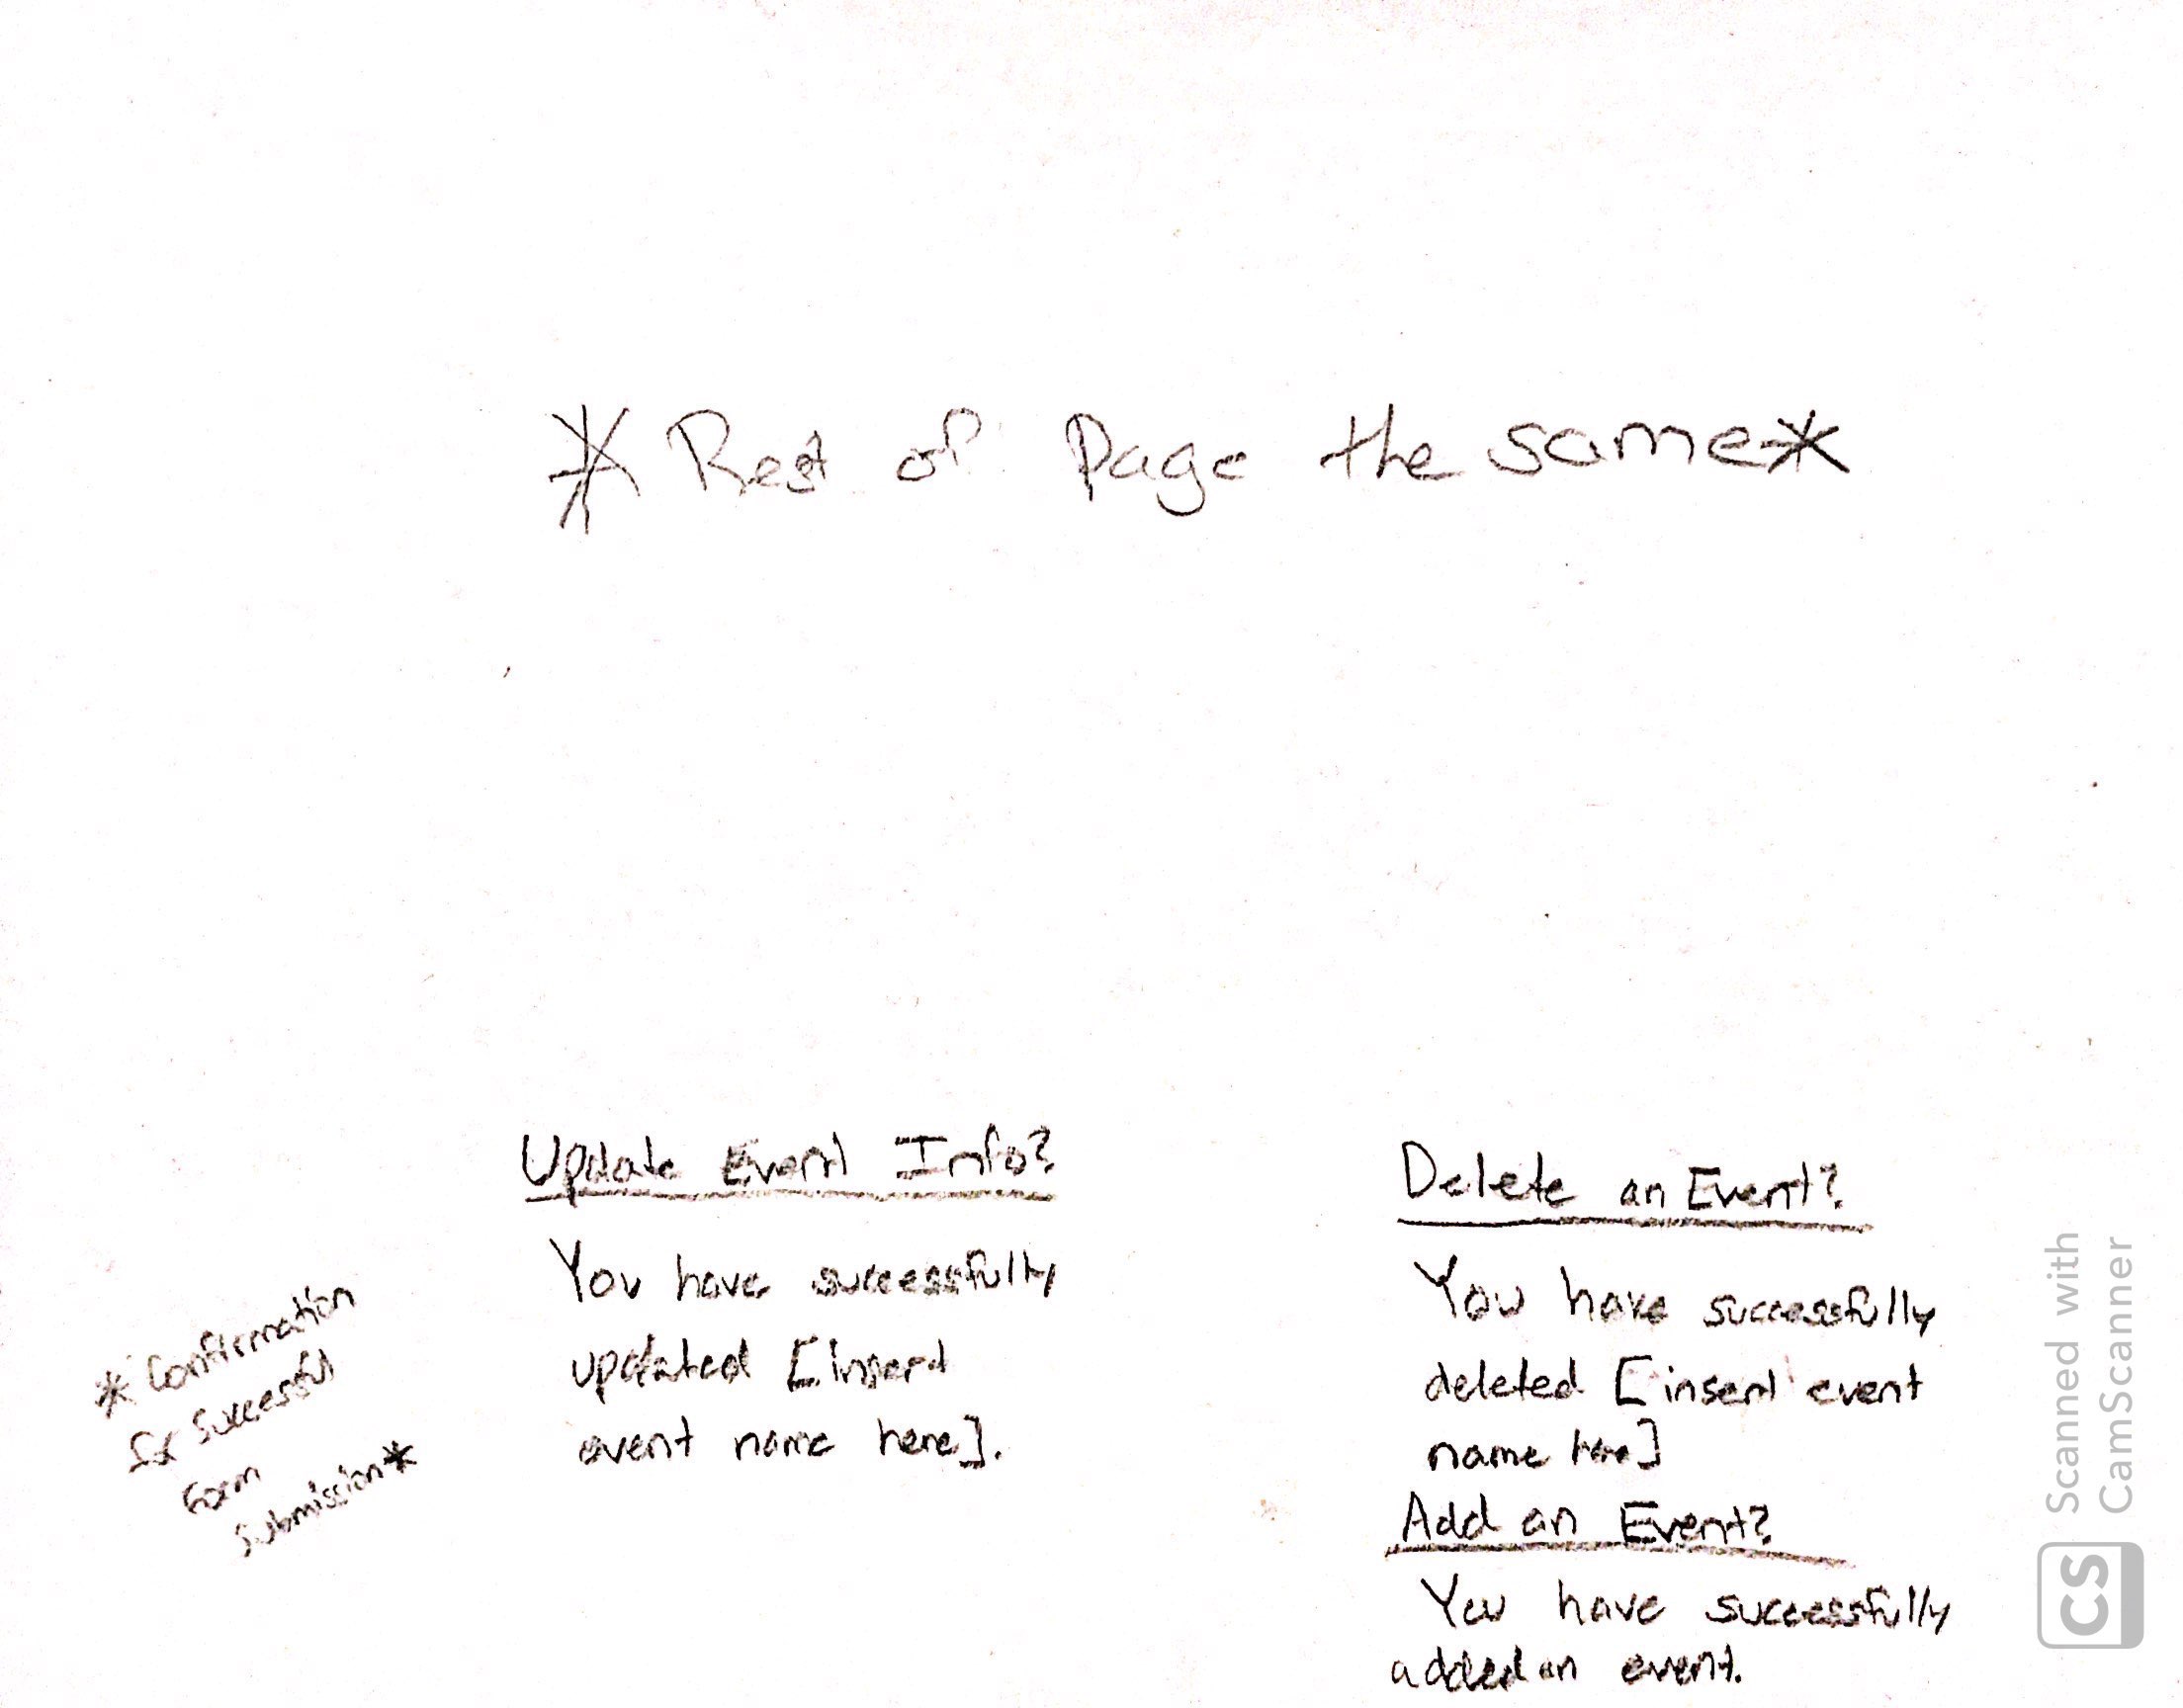 * Rest of Page the same *
* Confirmation
for Successful
Form
Submission *
Update Event Info?
You have successfully
updated [insert
event name here].
Delete an Event?
You have successfully
deleted [insert event
name here]
Add an Event?
You have successfully
added an event.
Scanned with
CamScanner
CS